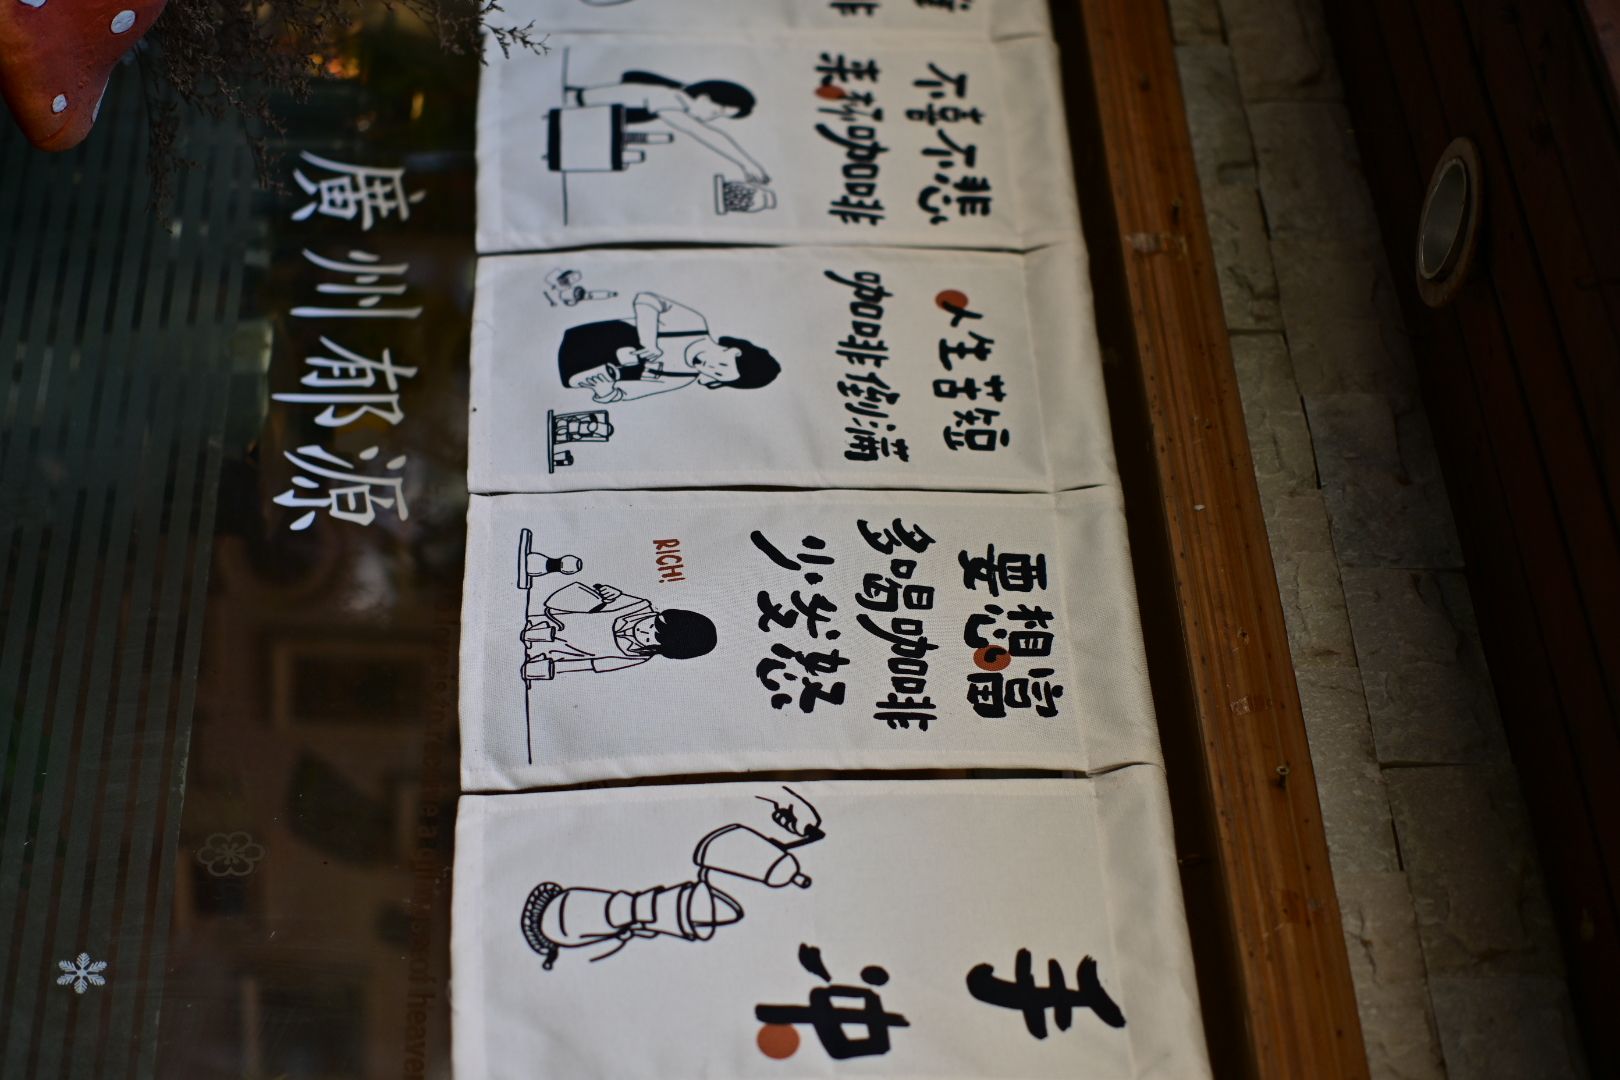 不喜不悲
来杯咖啡
人生苦短
咖啡倒满
要想富
多喝咖啡
少发
RICH!
手
冲
廣州郁源
a glimpse of heaven